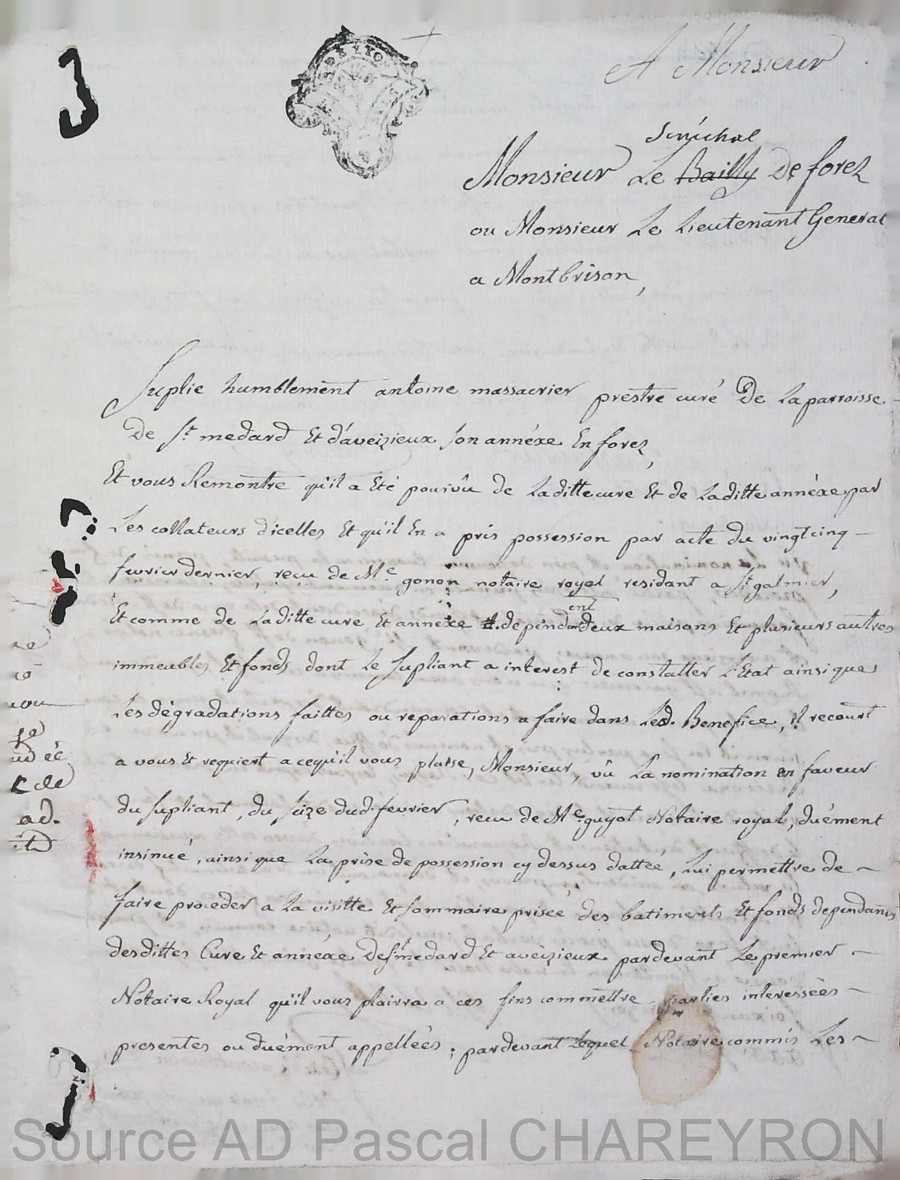 A Monsieur
Senéchal
Monsieur Le Bailly De forez
ou Monsieur Le Lieutenant General
a Montbrison,
Suplie humblement antoine massacrier prestre curé De la parroisse
De St medard Et d'aveizieux son annéxe En forez,
Et vous Remontre qu'il a Eté pourvû de Laditte cure Et de Laditte annéxe par
Les collateurs d'icelles Et qu'il En a pris possession par acte du vingtcinq
fevrier dernier, recu de Me. gonon notaire royal residant a St galmier,
ent
Et comme de Laditte cure Et annéxe dependent deux maisons Et plusieurs autres
immeubles Et fonds dont Le supliant a interest de constatter L'Etat ainsi que
Les dégradations faittes ou reparations a faire dans Led. Benefice, il recourt
a vous Et requiert a cequ'il vous plaise, Monsieur, vû La nomination en faveur
du supliant, du seize dud. fevrier, recu de Me. guyot Notaire royal, duément
insinué, ainsi que La prise de possession cy dessus dattée, Lui permettre de
faire proceder a La visitte Et sommaire prisée des batiments Et fonds dependants
desdittes Cure Et annéxe De St medard Et aveizieux pardevant Le premier
Notaire Royal qu'il vous plairra a ces fins commettre parties interessées
presentes ou duément appellées; pardevant Lequel Notaire commis Les
ad.
Source AD Pascal CHAREYRON